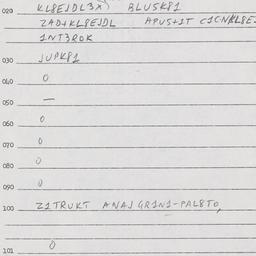 020 KL8EJDL3X) BLUSK81
ZAD+KL8EJDL APUS+1T C1CNKL8E
1NT3ROK
030 JUPK81
040 0
050 —
060 0
070 0
080 0
090 0
100 Z1TRUKT ANAJ GR1N1-PAL8TO,
101 0